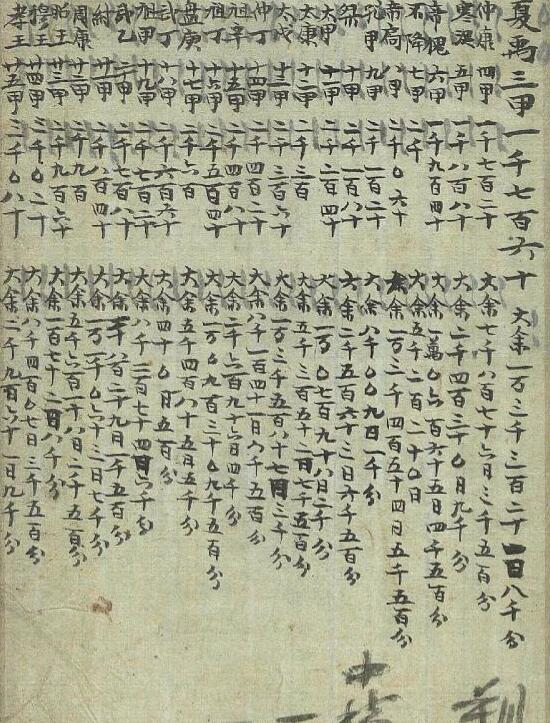 夏禹三甲一千七百六十 大余一万三千三百二十四日八千分
仲康四甲一千七百二十 大余七千八百七十六日三千五百分
寒浞五甲一千八百八十 大余二千四百三十〇日九千分
帝槐六甲一千九百四十 大余一萬〇六百六十五日四千五百分
不降七甲二千 大余五千二百二十〇日
帝扃八甲二千〇六十 大余一万三千四百五十四日五千五百分
孔甲九甲二千一百二十 大余八千〇〇九日一千分
桀十甲二千一百八十 大余二千五百六十三日六千五百分
太甲十一甲二千二百四十 大余一万〇七百九十八日二千分
太康十二甲二千三百 大余五千三百五十二日七千五百分
太戊十三甲二千三百六十 大余一万三千五百八十七日三千分
仲丁十四甲二千四百二十 大余八千一百四十一日八千五百分
祖辛十五甲二千四百八十 大余二千六百九十六日四千分
祖丁十六甲二千五百四十 大余一万〇九百三十〇九千五百分
盘庚十七甲二千六百 大余五千四百八十五日五千分
武丁十八甲二千六百六十 大余四十〇日五百分
祖甲十九甲二千七百二十 大余八千二百七十四日六千分
武乙二十甲二千七百八十 大余二千八百二十九日一千五百分
紂廿一甲二千八百四十 大余一万一千〇六十三日七千分
周康廿二甲二千九百 大余五千六百一十八日二千五百分
昭王廿三甲二千九百六十 大余一百七十二日八千分
穆王廿四甲三千〇二十 大余八千四百〇七日三千五百分
孝王廿五甲三千〇八十 大余二千九百六十一日九千分
中